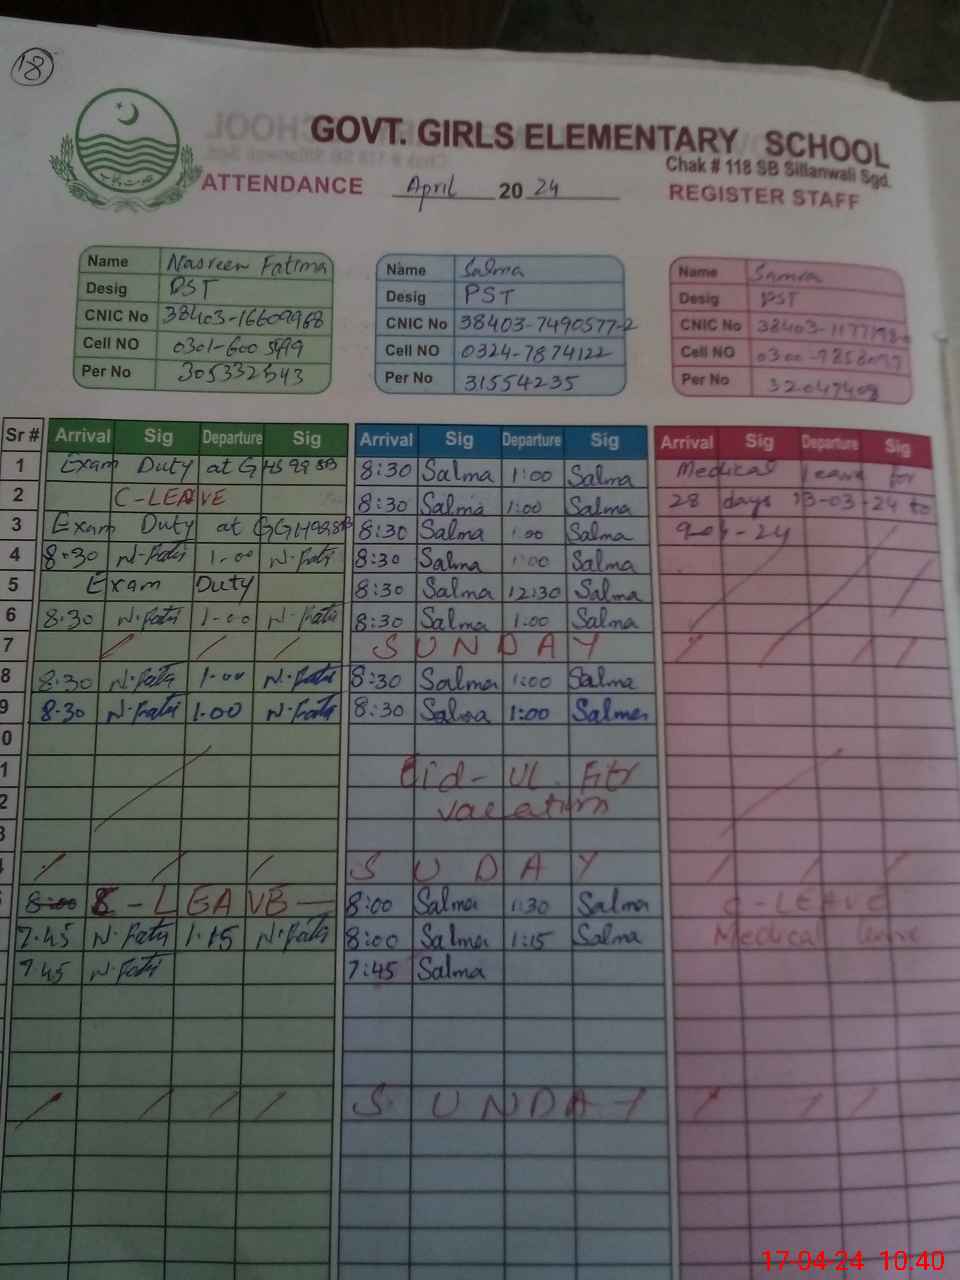 18
GOVT. GIRLS ELEMENTARY SCHOOL
Chak # 118 SB Sillanwali Sgd.
ATTENDANCE April 20 24 REGISTER STAFF
Name Nasreen Fatima
Desig PST
CNIC No 38403-16609968
Cell NO 0301-600
Per No 305332543
Name Salma
Desig PST
CNIC No 38403-7490577-2
Cell NO 0324-7874122
Per No 31554235
Name Samra
Desig PST
CNIC No
Cell NO
Per No 32047408
Sr # Arrival Sig Departure Sig Arrival Sig Departure Sig Arrival Sig Departure Sig
1 Exam Duty at GHS 99 SB 8:30 Salma 1:00 Salma Medical leave for
2 C-LEAVE 8:30 Salma 1:00 Salma 28 days 13-03-24 to
3 Exam Duty at 8:30 Salma 1:00 Salma
4 8:30 N-Fati 1-00 N-Fati 8:30 Salma 1:00 Salma
5 Exam Duty 8:30 Salma 12:30 Salma
6 8.30 N-Fati 1-00 N-Fati 8:30 Salma 1:00 Salma
7 SUNDAY
8 8:30 N-Fati 1-00 N-Fati 8:30 Salma 1:00 Salma
9 8.30 N-Fati 1.00 N-Fati 8:30 Salma 1:00 Salma
0
1 Eid-Ul. Fitr
2 vacation
3
4 SUDAY
8:00 C-LEAVE 8:00 Salma 1:30 Salma C-LEAVE
7.45 N-Fati 1.15 N-Fati 8:00 Salma 1:15 Salma Medical leave
7.45 N-Fati 7:45 Salma
SUNDAY
17-04-24 10.40